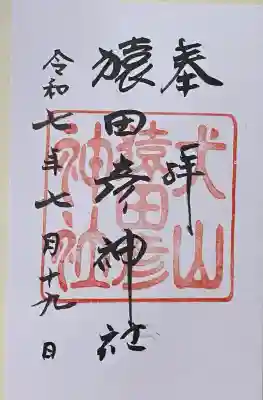 奉拝
猿田彦神社
令和七年七月十九日
弌山
猿田彦
神社